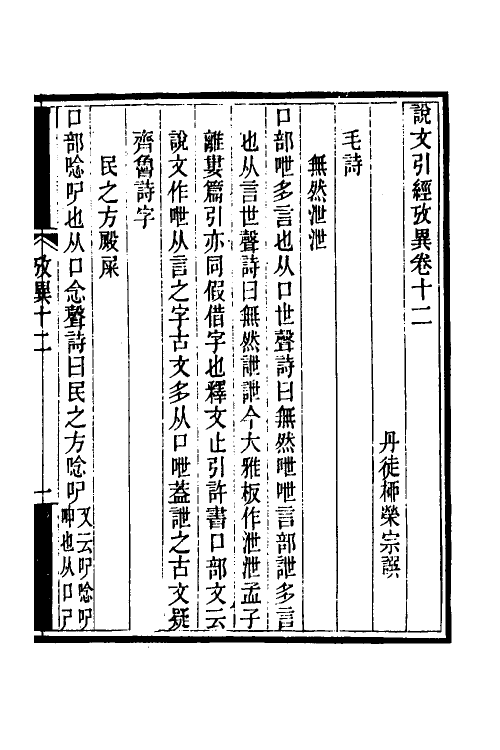 說文引經攷異卷十二
丹徒柳榮宗譔
毛詩
無然泄泄
口部呭多言也从口世聲詩曰無然呭呭言部詍多言
也从言世聲詩曰無然詍詍今大雅板作泄泄孟子
離婁篇引亦同假借字也釋文止引許書口部文云
說文作呭从言之字古文多从口呭蓋詍之古文疑
齊魯詩字
民之方殿屎
口部唸㕧也从口念聲詩曰民之方唸㕧又云㕧唸㕧
呻也从口尸
攷異十二
一